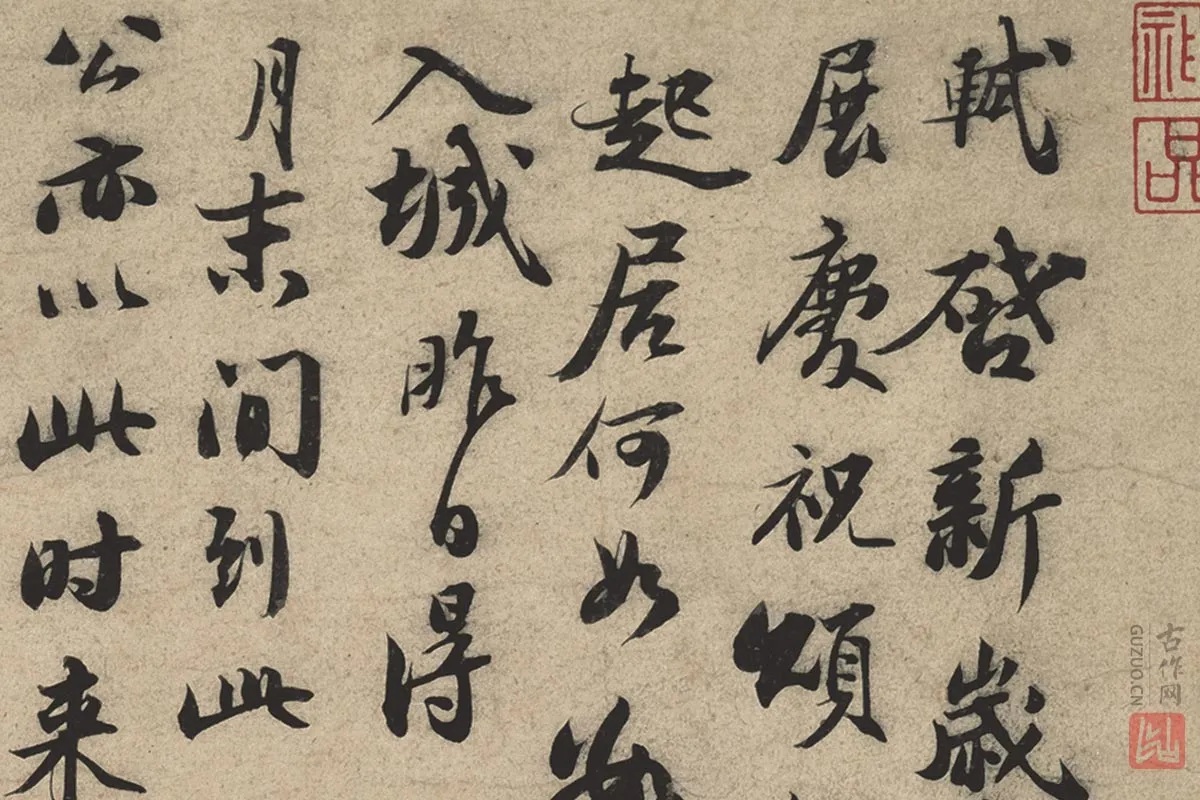 軾啓新歲
展慶祝頌
起居何如
入城昨日得
月末間到此
公亦以此時来
古作网
GUZUO.CN